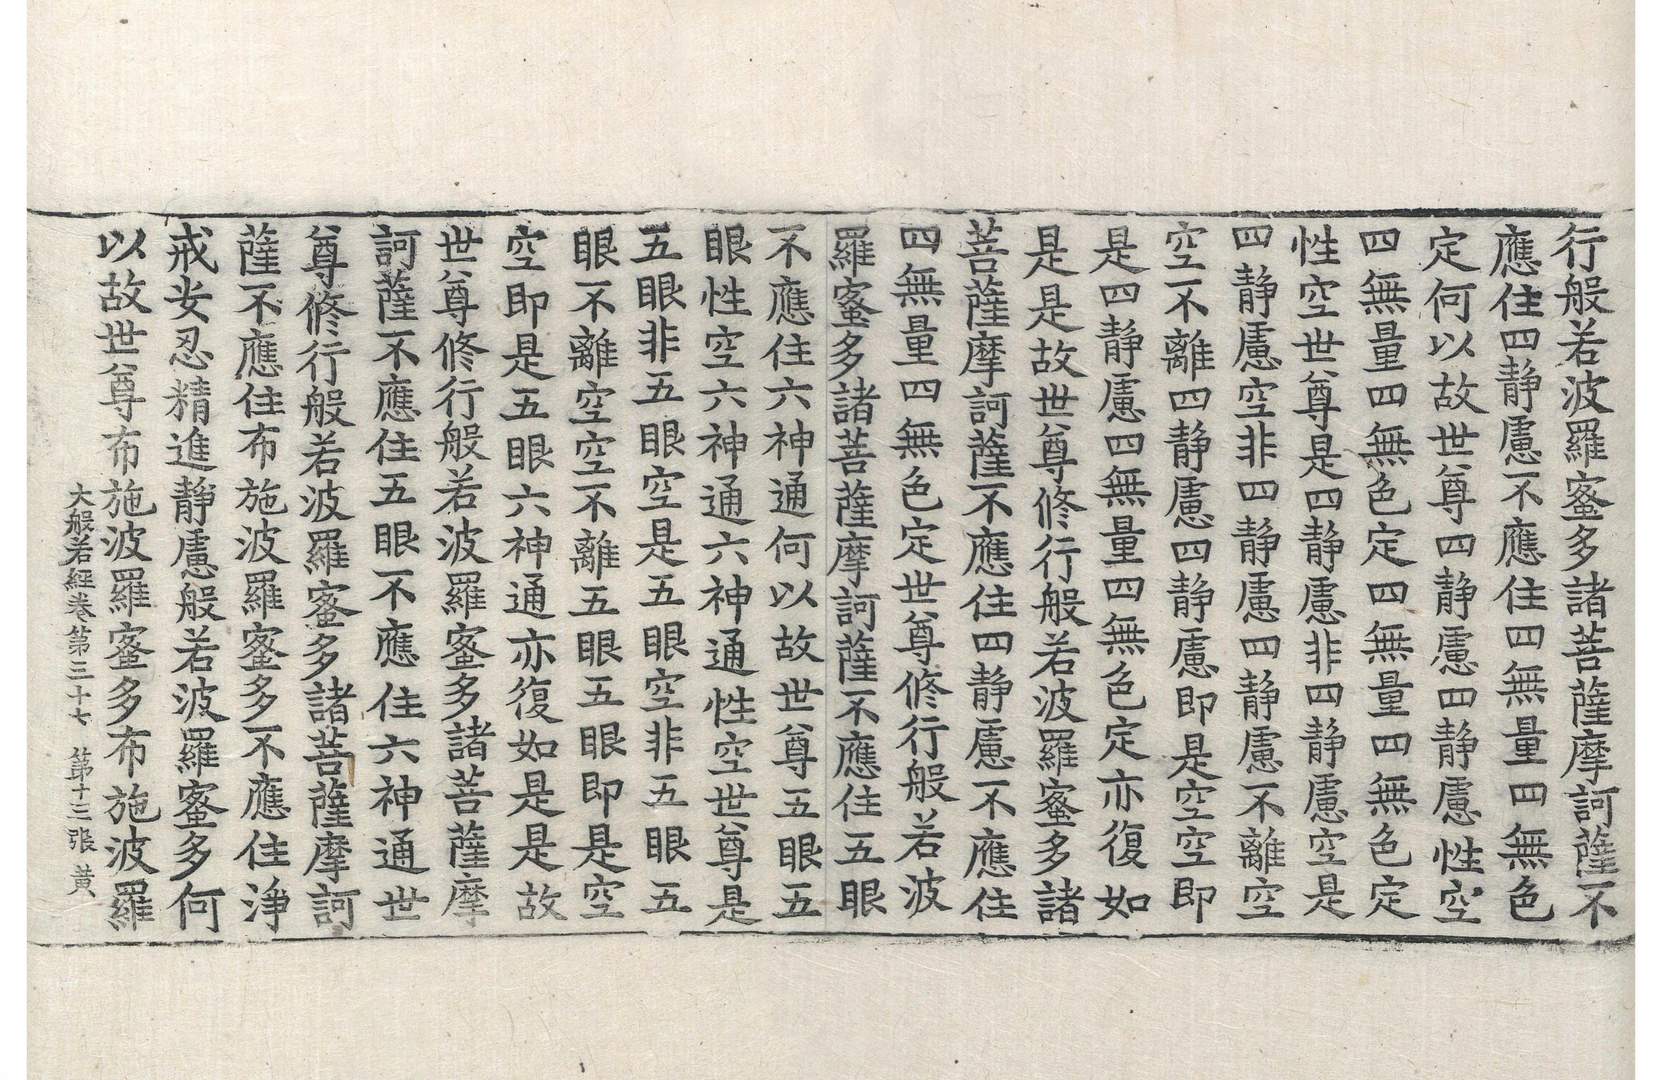 行般若波羅蜜多諸菩薩摩訶薩不
應住四静慮不應住四無量四無色
定何以故世尊四静慮四静慮性空
四無量四無色定四無量四無色定
性空世尊是四静慮非四静慮空是
四静慮空非四静慮四静慮不離空
空不離四静慮四静慮即是空空即
是四静慮四無量四無色定亦復如
是是故世尊修行般若波羅蜜多諸
菩薩摩訶薩不應住四静慮不應住
四無量四無色定世尊修行般若波
羅蜜多諸菩薩摩訶薩不應住五眼
不應住六神通何以故世尊五眼五
眼性空六神通六神通性空世尊是
五眼非五眼空是五眼空非五眼五
眼不離空空不離五眼五眼即是空
空即是五眼六神通亦復如是是故
世尊修行般若波羅蜜多諸菩薩摩
訶薩不應住五眼不應住六神通世
尊修行般若波羅蜜多諸菩薩摩訶
薩不應住布施波羅蜜多不應住淨
戒安忍精進静慮般若波羅蜜多何
以故世尊布施波羅蜜多布施波羅
大般若經卷第三十七 第十三張 黄